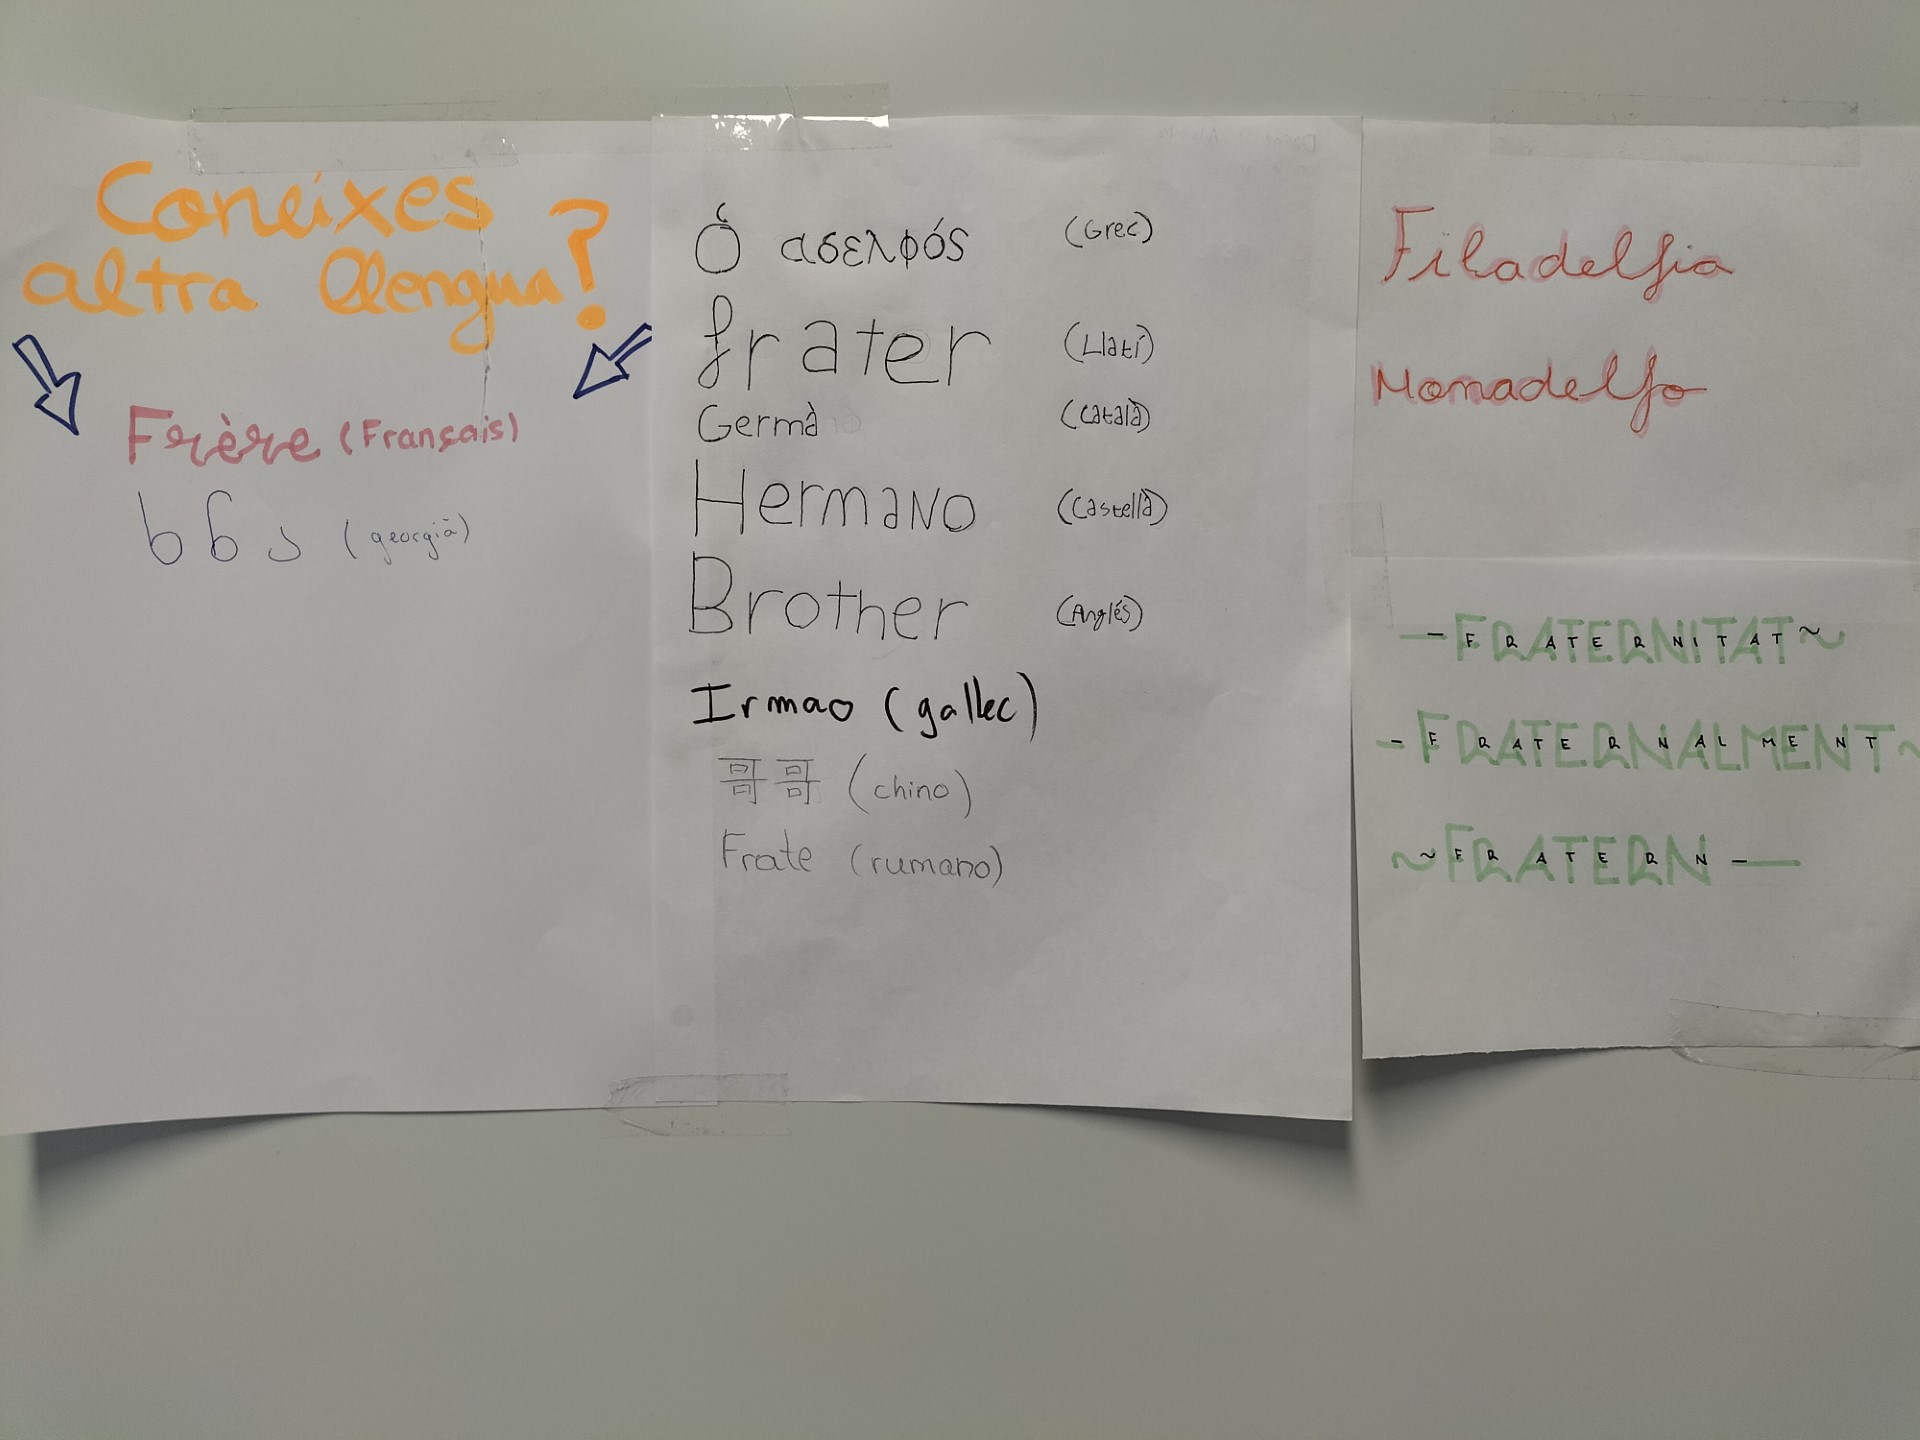 Coneixes
altra llengua?
Frère (Français)
ძმა (georgià)
Ὁ αδελφός (Grec)
frater (Llatí)
Germà (Català)
Hermano (Castellà)
Brother (Anglés)
Irmao (gallec)
哥哥 (chino)
Frate (rumano)
Filadelfia
Monadelfo
-FRATERNITAT~
-FRATERNALMENT~
~FRATERN-